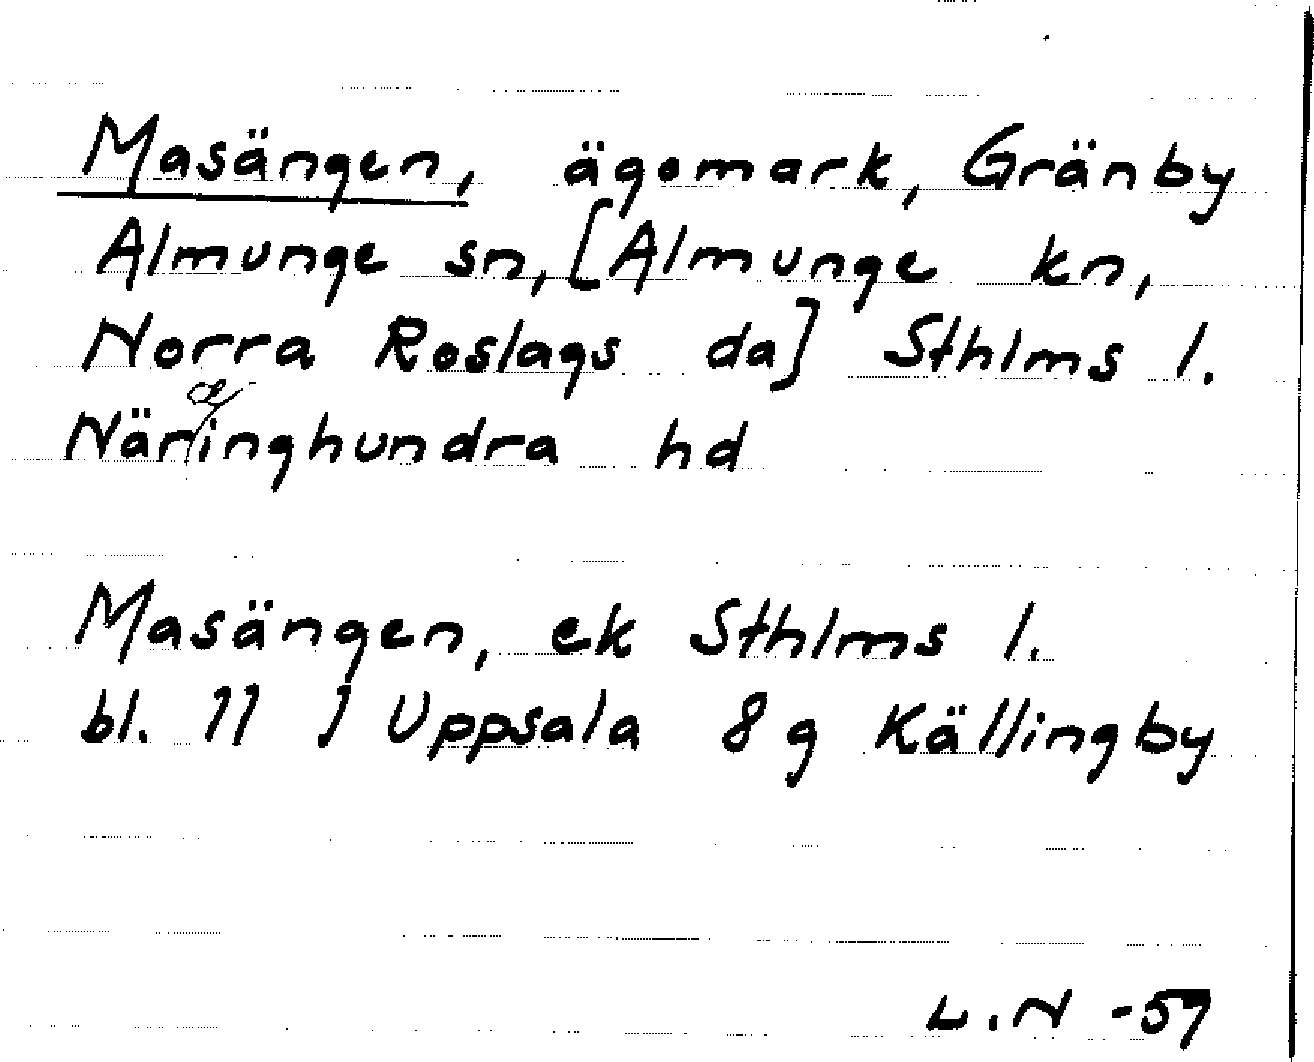 Masängen, ägomark, Gränby
Almunge sn, [Almunge kn,
Norra Roslags da] Sthlms l.
Näringhundra hd
Masängen, ek Sthlms l.
bl. 11 I Uppsala 8 g Källingby
L.N -59